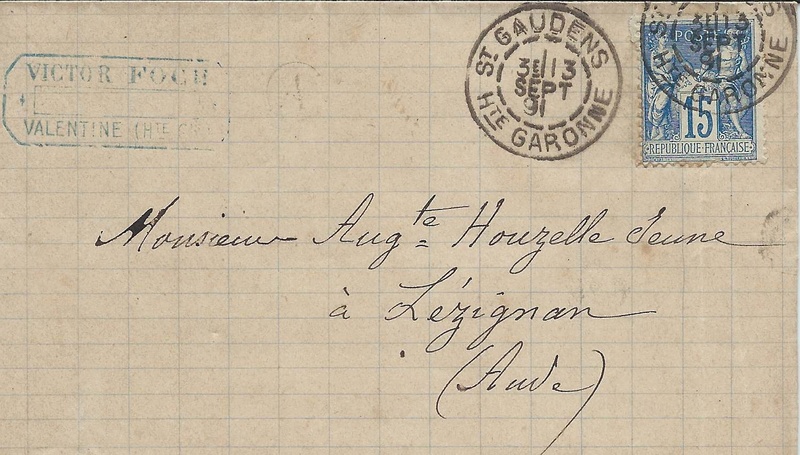 VICTOR FOCH
VALENTINE (HTE
ST GAUDENS
3E 13
SEPT
91
HTE GARONNE
3E 13
SEPT
91
HTE GARONNE
15
REPUBLIQUE FRANÇAISE
Monsieur Augte Houzelle Jeune
à Lézignan
(Aude)